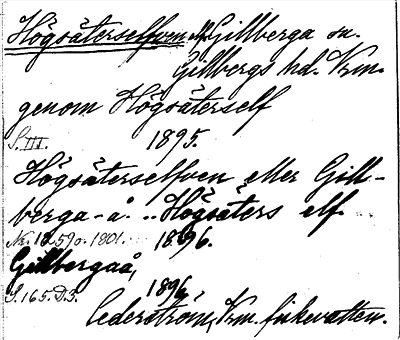 Högsäterselfven, Gillberga sn.
Gillbergs hd. Vrm.
genom Högsäterself
S. III. 1895.
Högsäterselfven eller Gill-
berga-å. .. Högsäters elf.
Nr. 1259 o. 1801. 1896.
Gillbergaå,
S. 165. D. 3. 1896
Cederström, Vrm. fiskevatten.